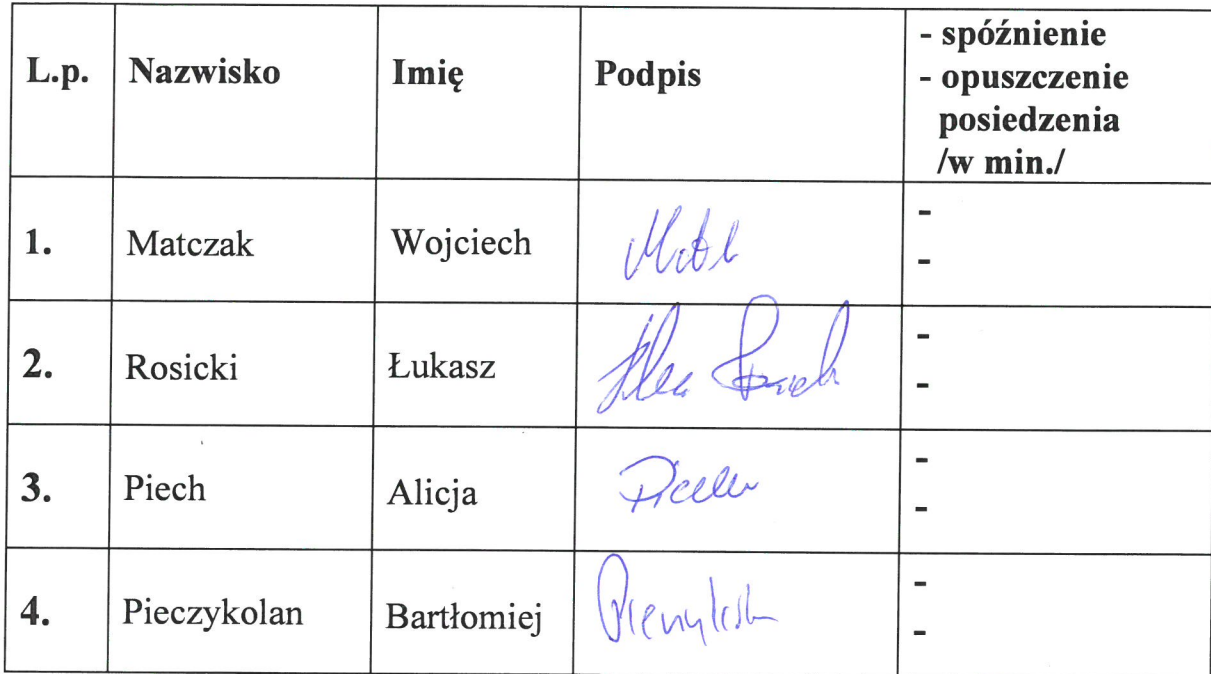 L.p. Nazwisko Imię Podpis - spóźnienie
- opuszczenie
posiedzenia
/w min./
1. Matczak Wojciech -
-
2. Rosicki Łukasz -
-
3. Piech Alicja -
-
4. Pieczykolan Bartłomiej -
-